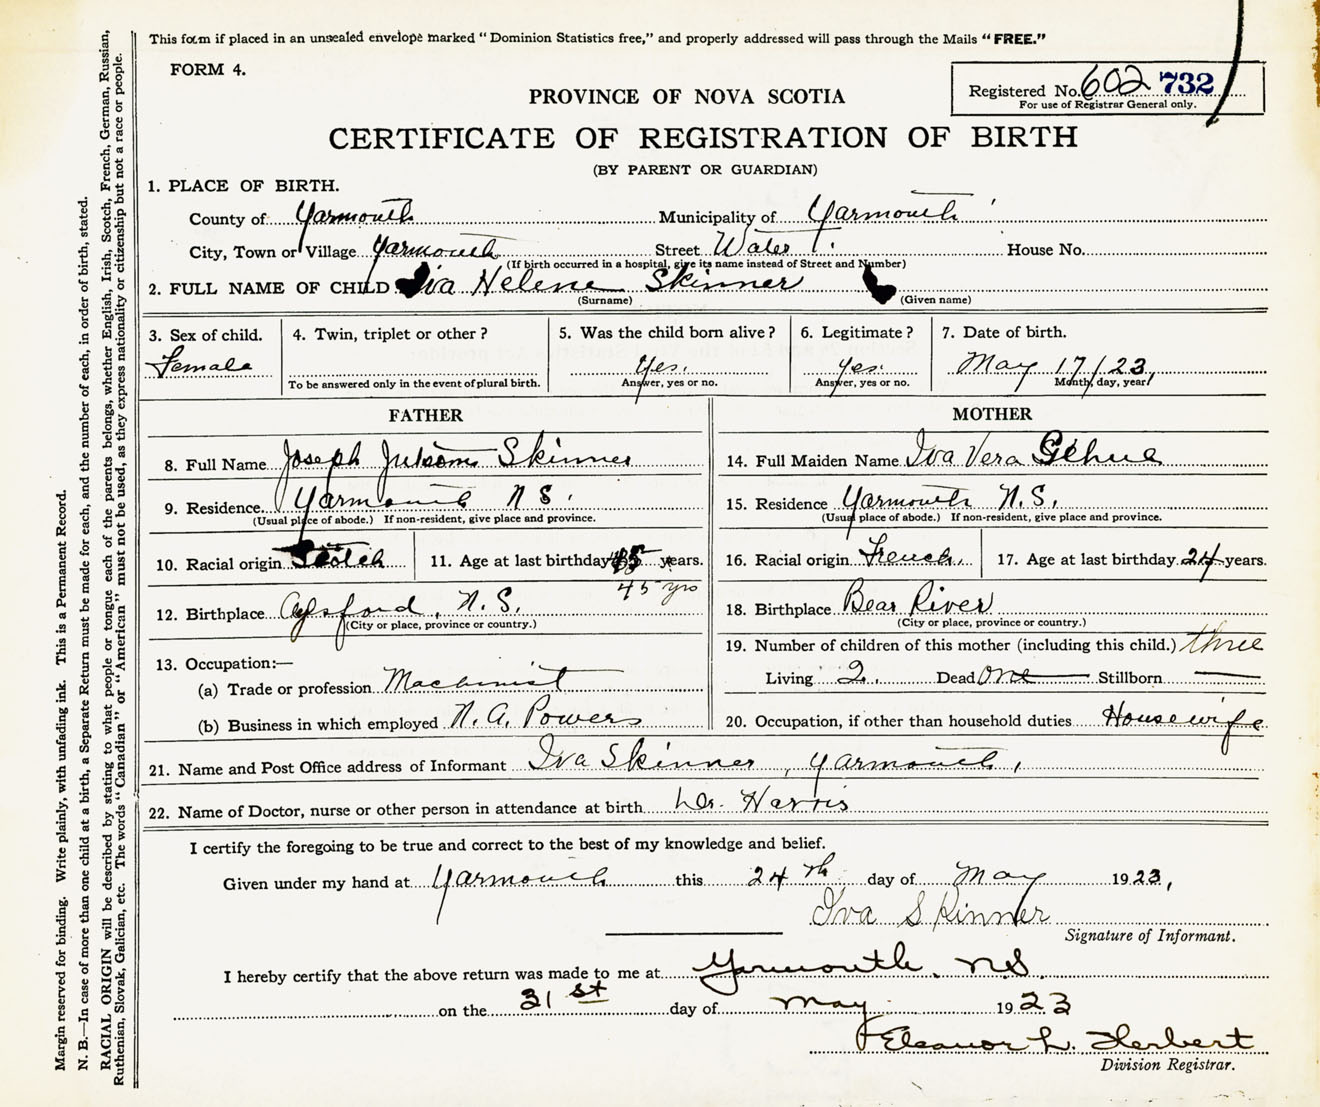 This form if placed in an unsealed envelope marked " Dominion Statistics free," and properly addressed will pass through the Mails " FREE."
FORM 4.
Registered No. 602 732
For use of Registrar General only.
PROVINCE OF NOVA SCOTIA
CERTIFICATE OF REGISTRATION OF BIRTH
(BY PARENT OR GUARDIAN)
1. PLACE OF BIRTH.
County of Yarmouth Municipality of Yarmouth
City, Town or Village Yarmouth Street Water House No.
(If birth occurred in a hospital, give its name instead of Street and Number)
2. FULL NAME OF CHILD Iva Helene Skinner
(Surname) (Given name)
3. Sex of child. 4. Twin, triplet or other ? 5. Was the child born alive ? 6. Legitimate ? 7. Date of birth.
Female Yes. Yes. May 17/23,
To be answered only in the event of plural birth. Answer, yes or no. Answer, yes or no. Month, day, year
FATHER MOTHER
8. Full Name Joseph Skinner 14. Full Maiden Name Iva Vera
9. Residence. Yarmouth N S. 15. Residence Yarmouth N.S.
(Usual place of abode.) If non-resident, give place and province. (Usual place of abode.) If non-resident, give place and province.
10. Racial origin Scotch 11. Age at last birthday 45 years. 16. Racial origin French. 17. Age at last birthday 24 years.
45 yrs
12. Birthplace Aylsford, N.S. 18. Birthplace Bear River
(City or place, province or country.) (City or place, province or country.)
13. Occupation:— 19. Number of children of this mother (including this child.) three
(a) Trade or profession Machinist Living 2. Dead One Stillborn —
(b) Business in which employed N. A. Powers 20. Occupation, if other than household duties Housewife
21. Name and Post Office address of Informant Iva Skinner, Yarmouth,
22. Name of Doctor, nurse or other person in attendance at birth Dr. Harris
I certify the foregoing to be true and correct to the best of my knowledge and belief.
Given under my hand at Yarmouth this 24th day of May 1923,
Iva Skinner
Signature of Informant.
I hereby certify that the above return was made to me at Yarmouth. NS
on the 31st day of May 1923
Eleanor L. Herbert
Division Registrar.
Margin reserved for binding. Write plainly, with unfading ink. This is a Permanent Record.
N. B.—In case of more than one child at a birth, a Separate Return must be made for each, and the number of each, in order of birth, stated.
RACIAL ORIGIN will be described by stating to what people or tongue each of the parents belongs, whether English, Irish, Scotch, French, German, Russian,
Ruthenian, Slovak, Galician, etc. The words " Canadian " or " American " must not be used, as they express nationality or citizenship but not a race or people.